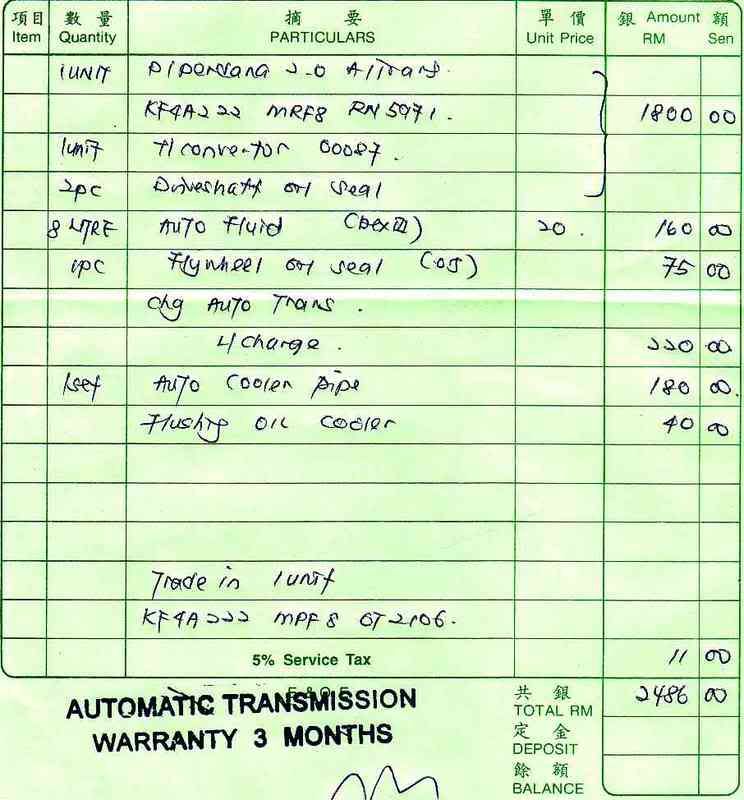 項目 數量 摘要 單價 銀 Amount 額
Item Quantity PARTICULARS Unit Price RM Sen
1 UNIT P/Perdana 2.0 A/Trans.
KF4A222 MRF8 RN5971. 1800 00
1unit T/convertor 00087.
2pc Driveshaft oil seal
8 LITRE AUTO Fluid (Dex III) 20. 160 00
1pc Flywheel oil seal 75 00
Chg AUTO Trans.
L/charge. 220 00
1set AUTO Cooler pipe 180 00.
Flushing OIL Cooler 40 00
Trade in 1 unit
KF4A222 MPF8 GT2106.
5% Service Tax 11 00
E & O E
AUTOMATIC TRANSMISSION
WARRANTY 3 MONTHS
共銀 2486 00
TOTAL RM
定金
DEPOSIT
餘額
BALANCE